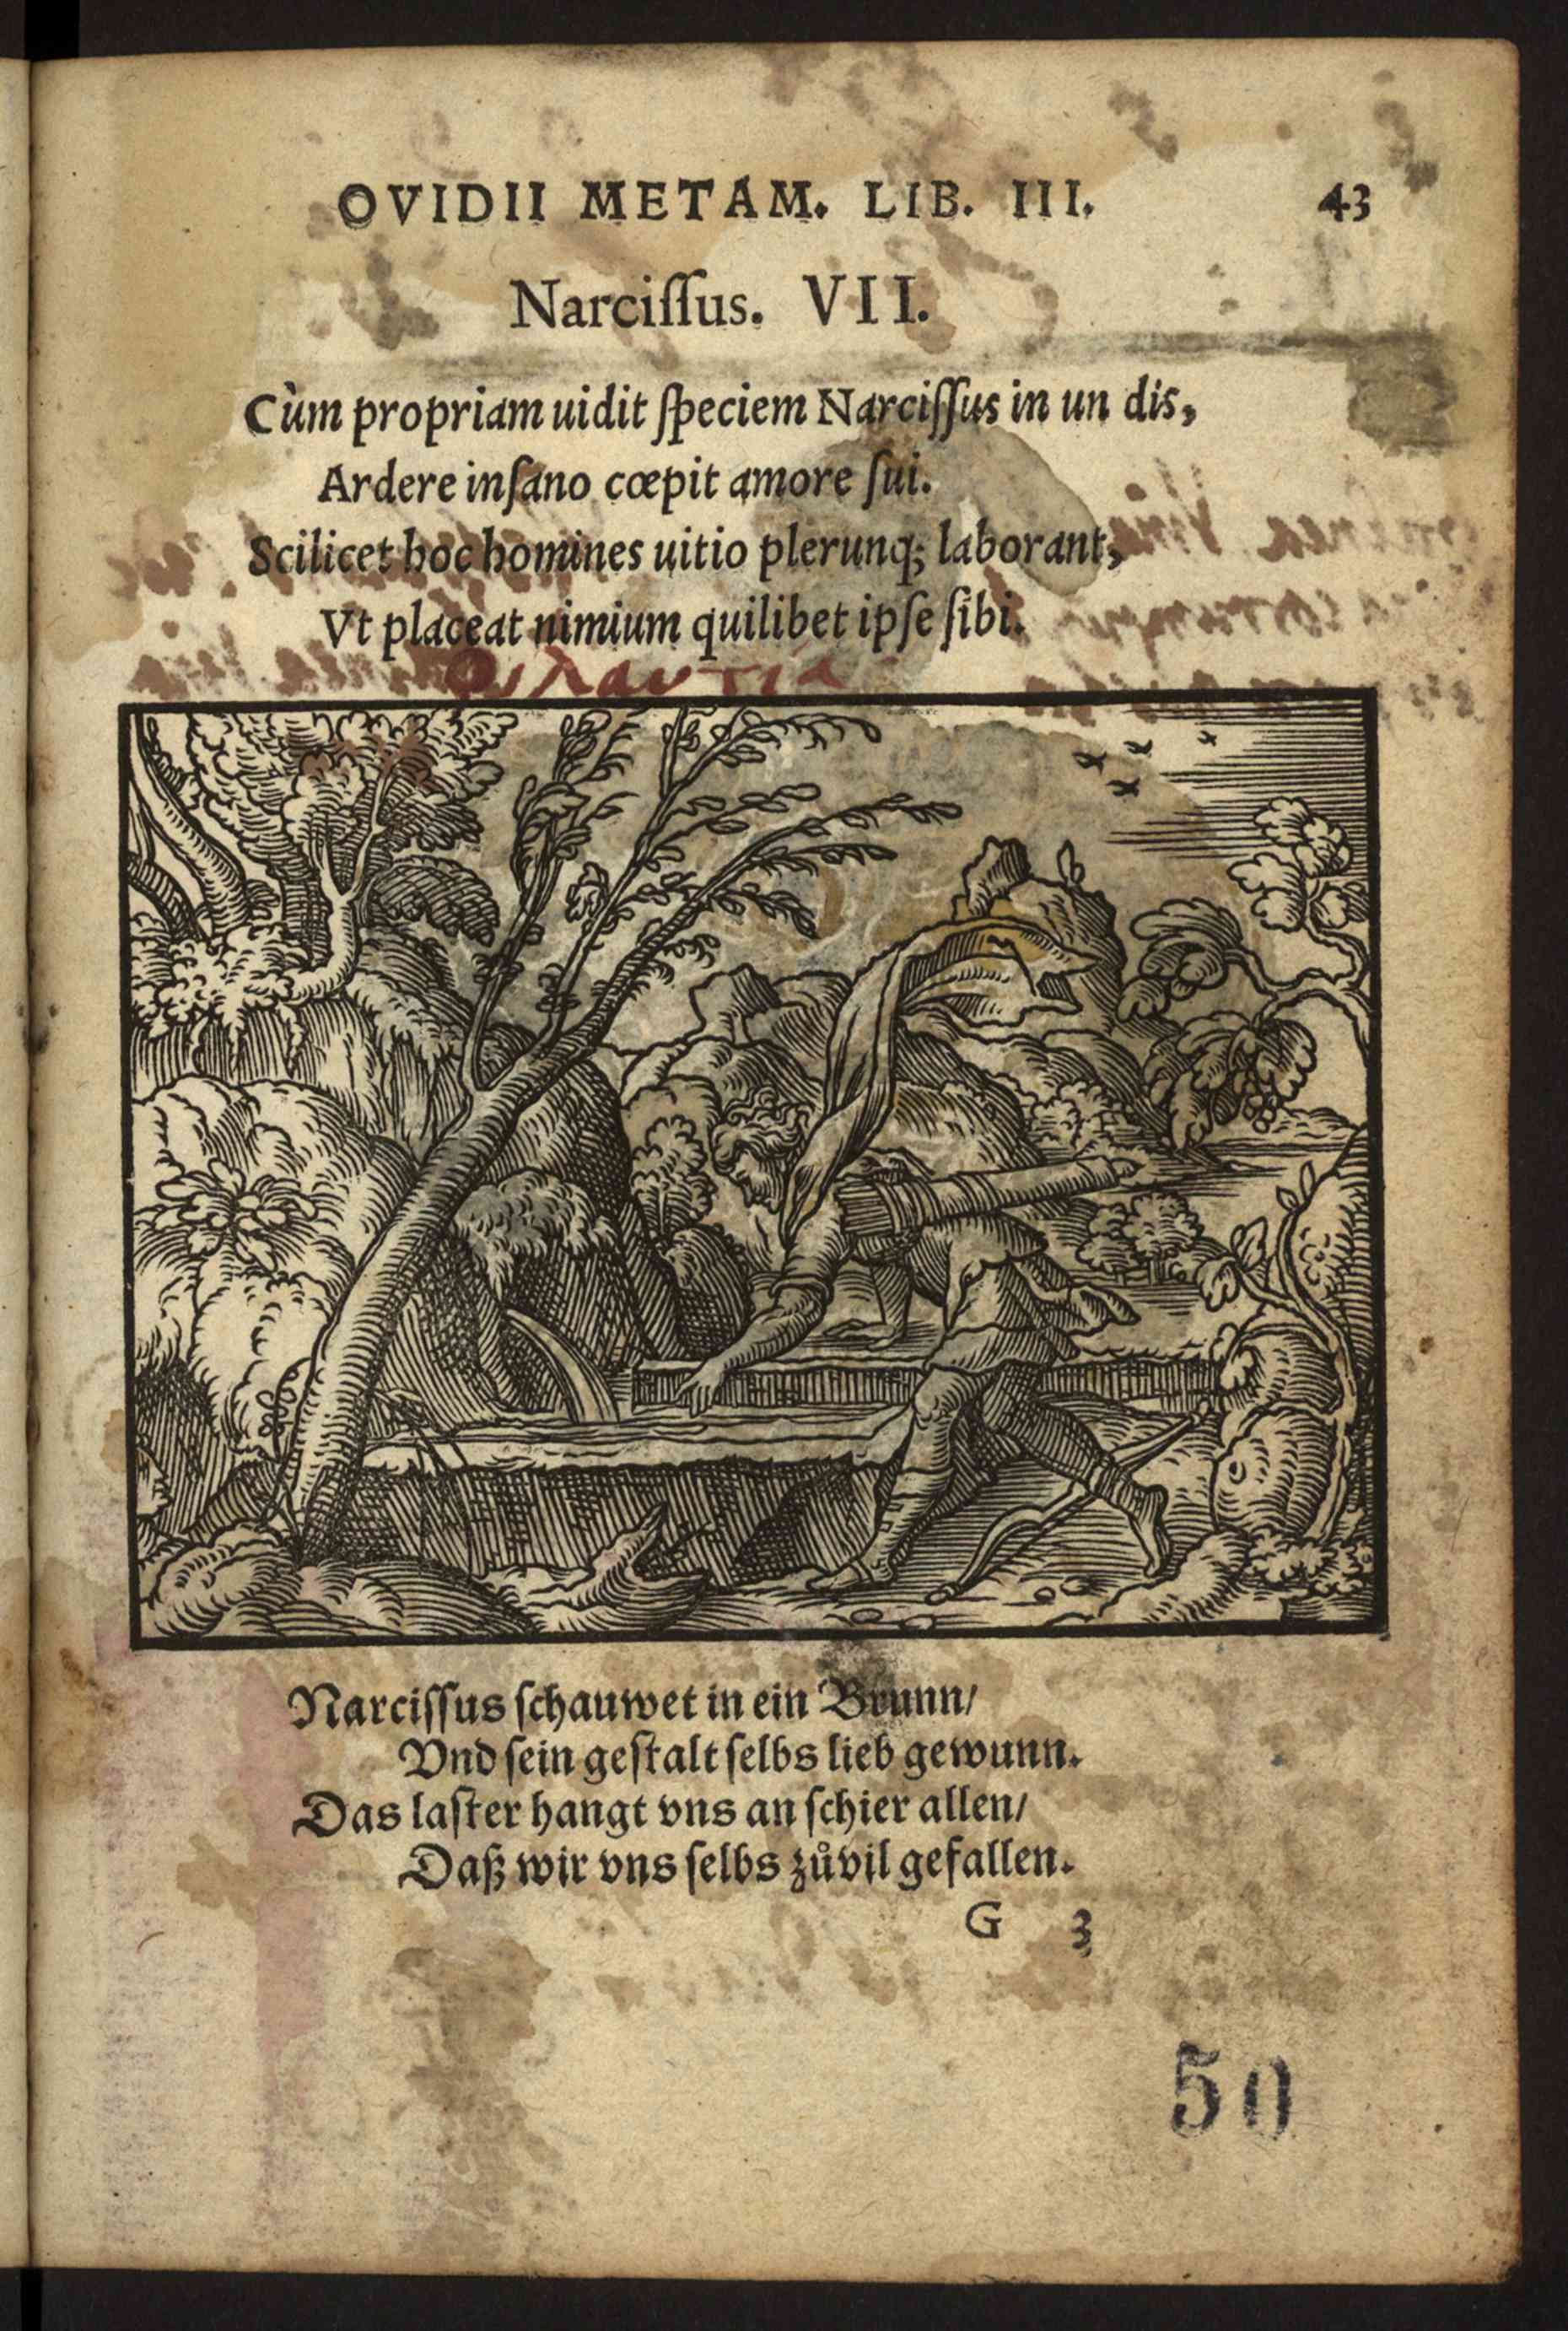 OVIDII METAM. LIB. III. 43
Narciſſus. VII.
Cùm propriam uidit ſpeciem Narciſſus in un dis,
Ardere inſano cœpit amore ſui.
Scilicet hoc homines uitio plerunq; laborant,
Vt placeat nimium quilibet ipſe ſibi.
Φιλαυτία
Narciſſus ſchauwet in ein Brunn/
Vnd ſein geſtalt ſelbs lieb gewunn.
Das laſter hangt vns an ſchier allen/
Daß wir vns ſelbs zůvil gefallen.
G 3
50